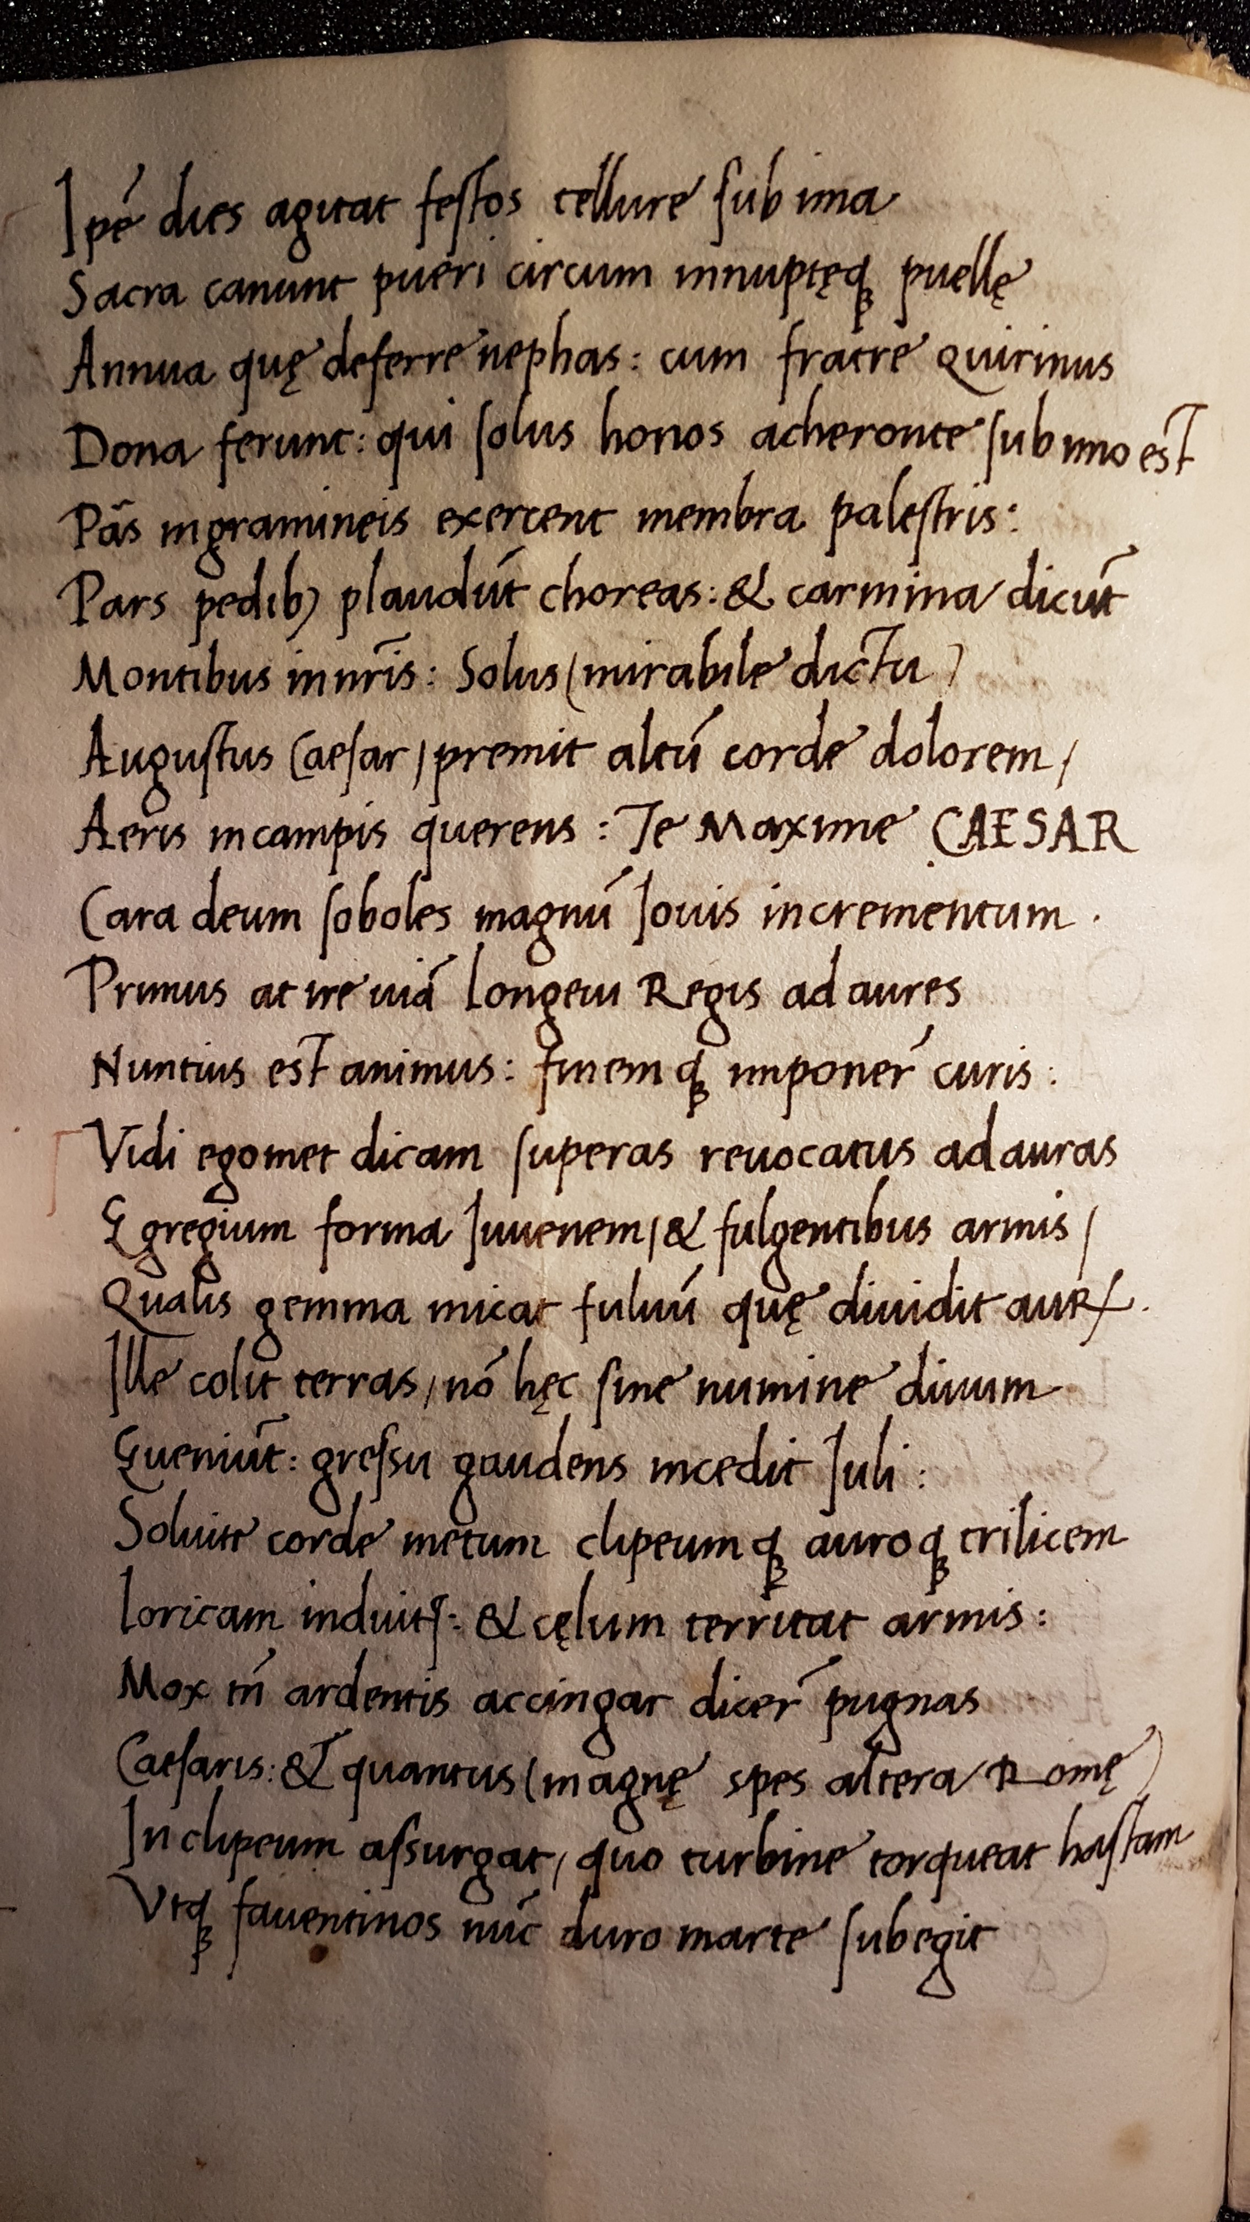 Ipē dies agitat festos tellure sub ima
Sacra canunt pueri circum innuptęqꝫ puellę
Annua quę deferre nephas: cum fratre Quirinus
Dona ferunt: qui solus honos acheronte sub imo est
Pãs in gramineis exercent membra palestris:
Pars pedibꝫ plaudũt choreas: & carmina dicũt
Montibus in nr̃is: Solus (mirabile dictu)
Augustus Caesar / premit altũ corde dolorem /
Aeris in campis querens: Te Maxime CAESAR
Cara deum soboles magnũ Iouis incrementum.
Primus at ire uiã longeui Regis ad aures
Nuntius est animus: finemqꝫ imponer̃ curis:
Vidi egomet dicam superas reuocatus ad auras
Egregium forma Iuuenem / & fulgentibus armis /
Qualis gemma micat fuluũ quę diuidit auꝝ.
Ille colit terras / nõ hęc sine numine diuum
Eueniũt: gressu gaudens incedit Iuli:
Soluite corde metum clipeumqꝫ auroqꝫ trilicem
loricam induitꝭ: & cęlum territat armis:
Mox tñ ardentis accingar dicer̃ pugnas
Caesaris: & quantus (magnę spes altera Romę)
In clipeum assurgat / quo turbine torqueat hastam
Vtqꝫ fauentinos nũc duro marte subegit